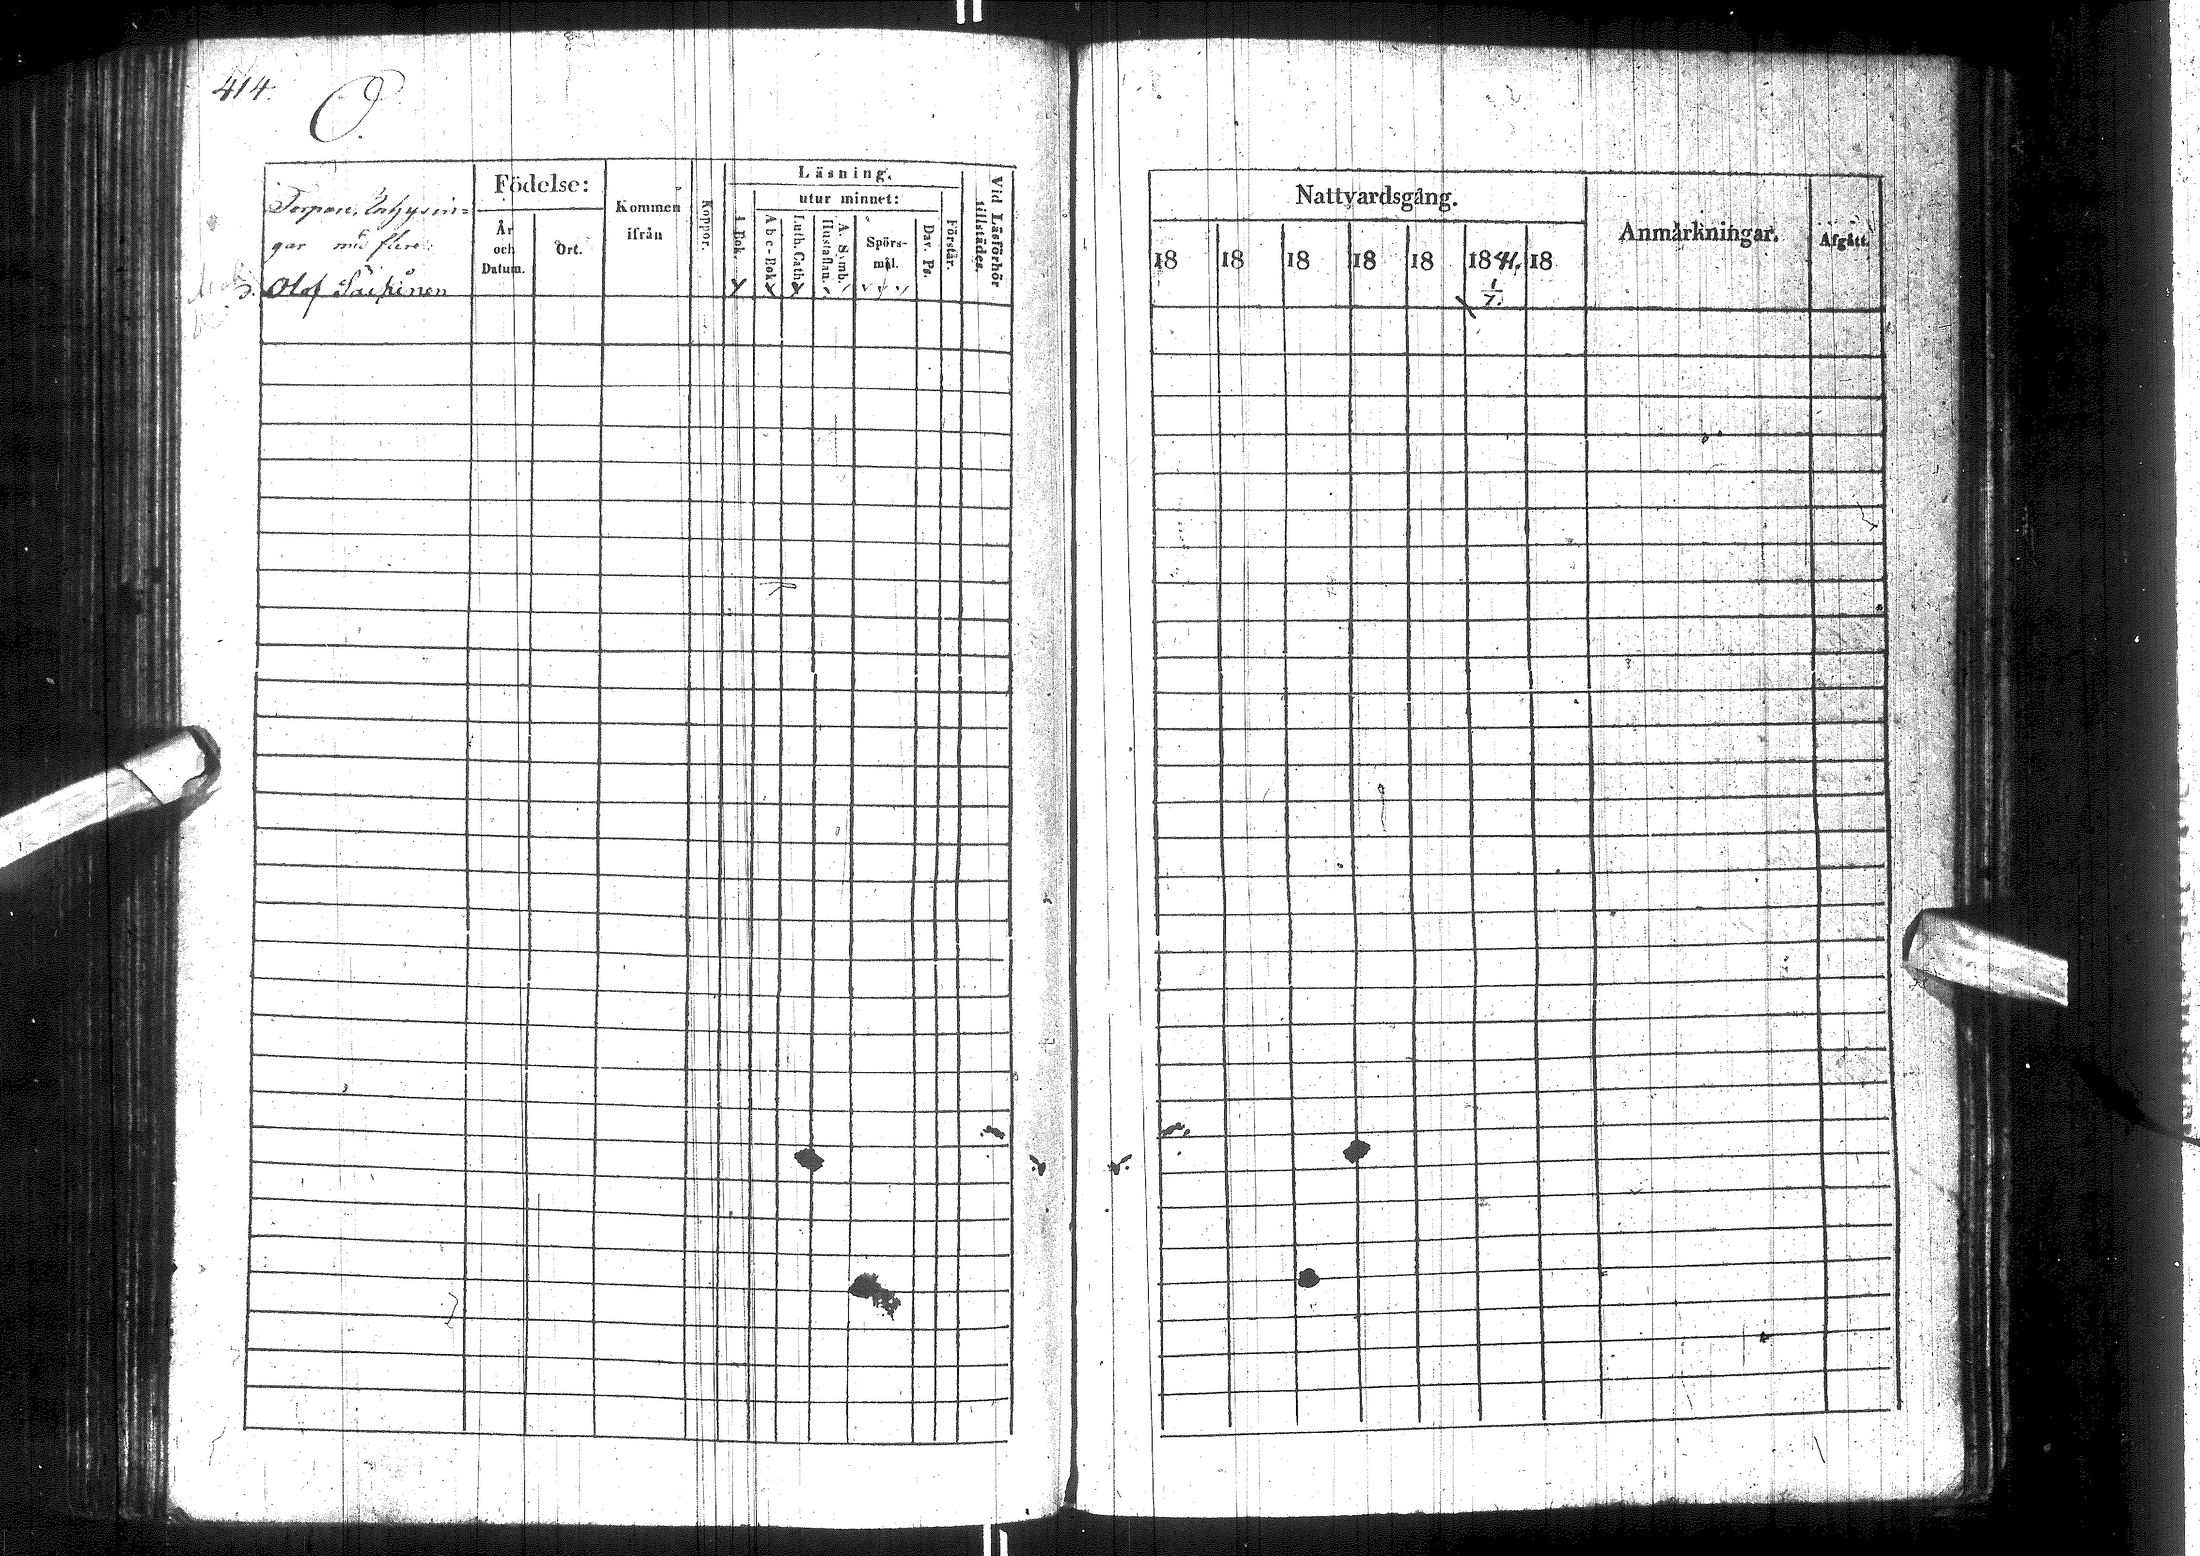 414.
O.
Torpare, Inhysin-
gar med flere.
Födelse:
År
och
Datum.
Ort.
Kommen
ifrån
Koppor.
Läsning.
i Bok.
utur minnet:
Abc-Bok.
Luth. Cath.
Hustaflan.
A. Symb.
Spörs-
mål.
Dav. Ps.
Förstår.
Vid Läsförhör
tillstädes.
Olof
Nattvardsgång.
18 18 18 18 18 1841. 18
1/7.
Anmärkningar.
Afgått.